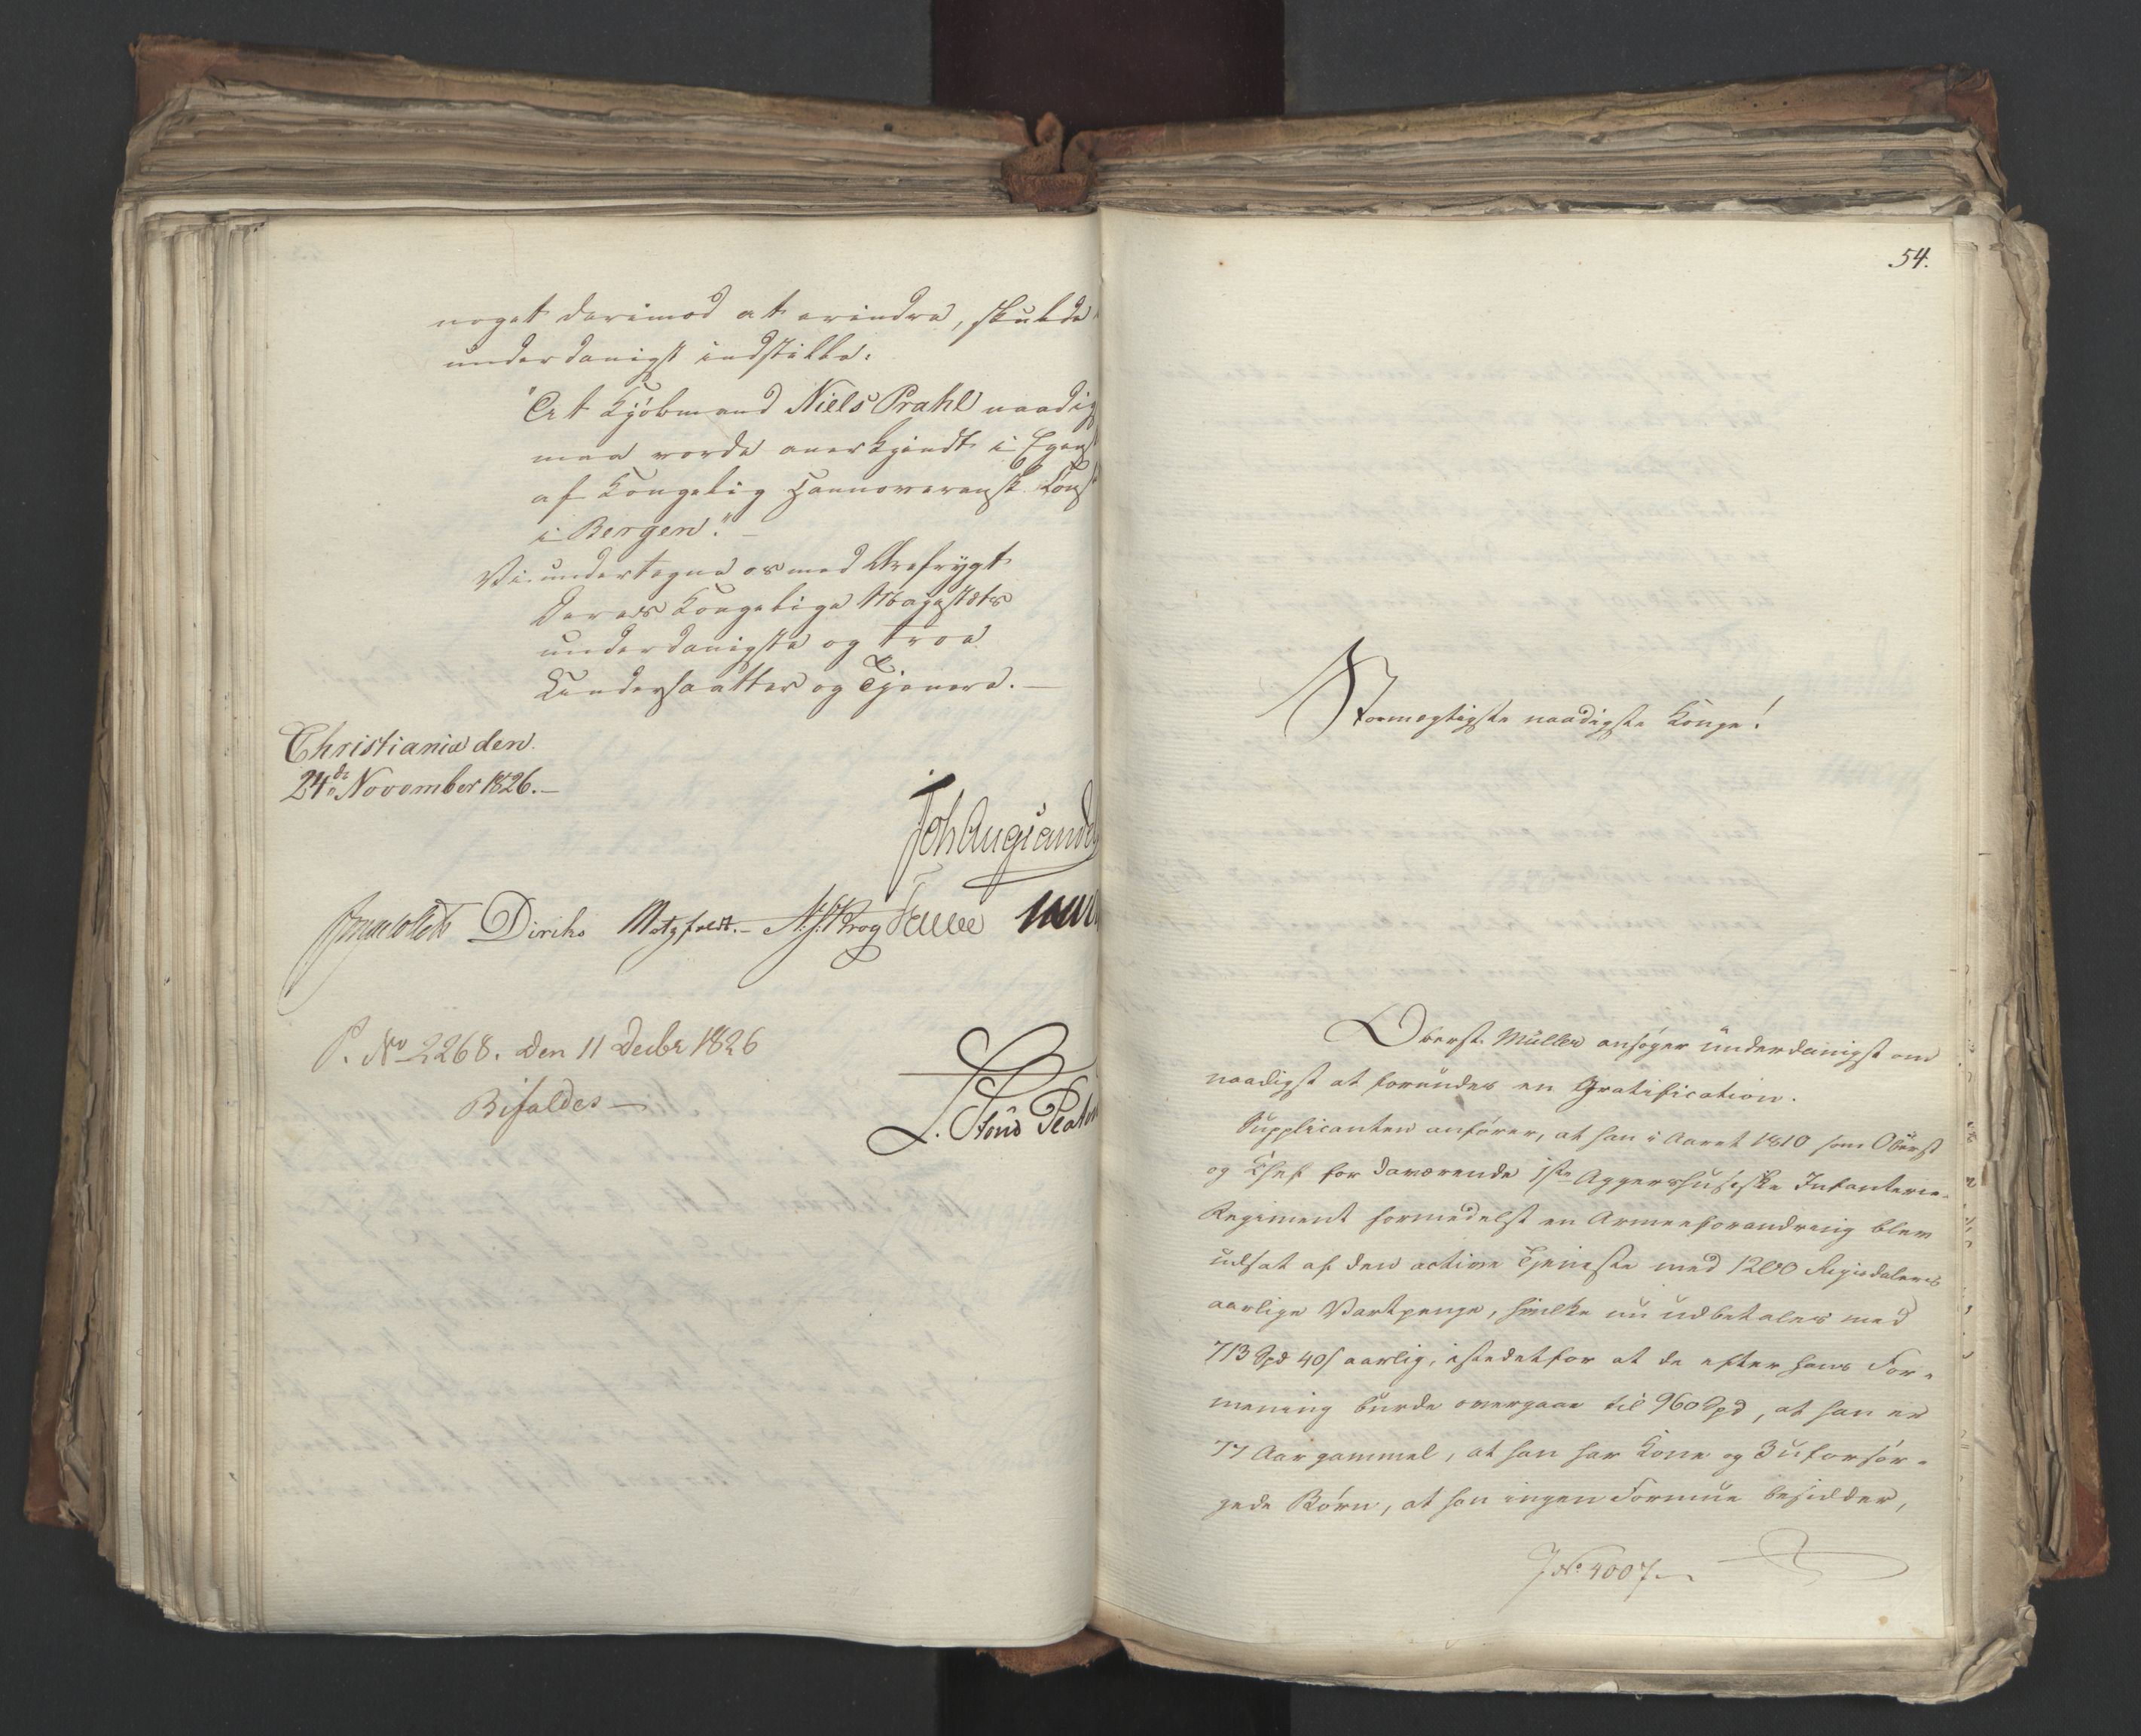 noget derimod at erindre, skulde
underdanigst indstille:
"At Kjøbmand Niels Prahl naadig
maa vorde anerkjendt i Egens
af Kongelig Hannoveransk Cons
i Bergen."—
Vi undertegne os med Ærefrygt
Deres Kongelige Majestæts
underdanigste og troe
Undersaatter og Tjenere.—
Christiania den
24de November 1826.—
Joh Aug Sande
Diriks Motzfeldt.— N. J. Krog
P. No 2268. den 11 Decbr 1826
Bifaldes—
54.
Stormægtigste naadigste Konge!
Oberst Müller ansøger underdanigst om
naadigst at forundes en Gratification.
Supplicanten anfører, at han i Aaret 1810 som Oberst
og Chef for daværende 1ste Aggershusiske Infanterie-
Regiment formedelst en Armeeforandring blev
udsat af den active Tjeneste med 1200 Rigsdalers
aarlige Vartpenge, hvilke nu udbetales med
713 Spd 40 s aarlig, istedetfor at de efter hans For-
mening burde overgaae til 960 Spd, at han er
77 Aar gammel, at han har Kone og 3 uforsør-
gede Børn, at han ingen Formue besidder,
J No. 4007